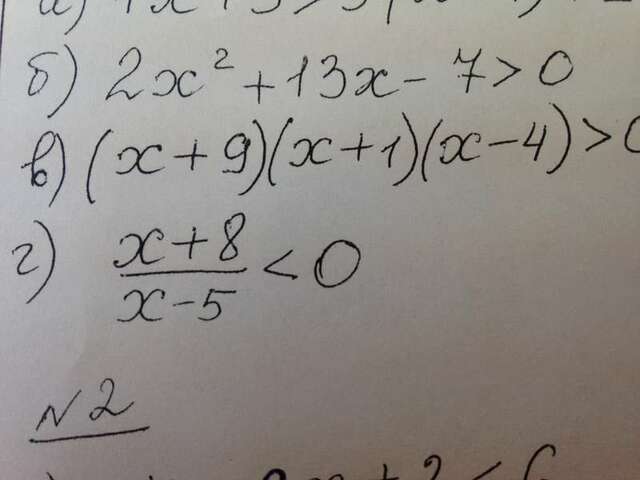 а)
б) 2x² + 13x - 7 > 0
в) (x + 9)(x + 1)(x - 4) > 0
г) x + 8
x - 5 < 0
N2